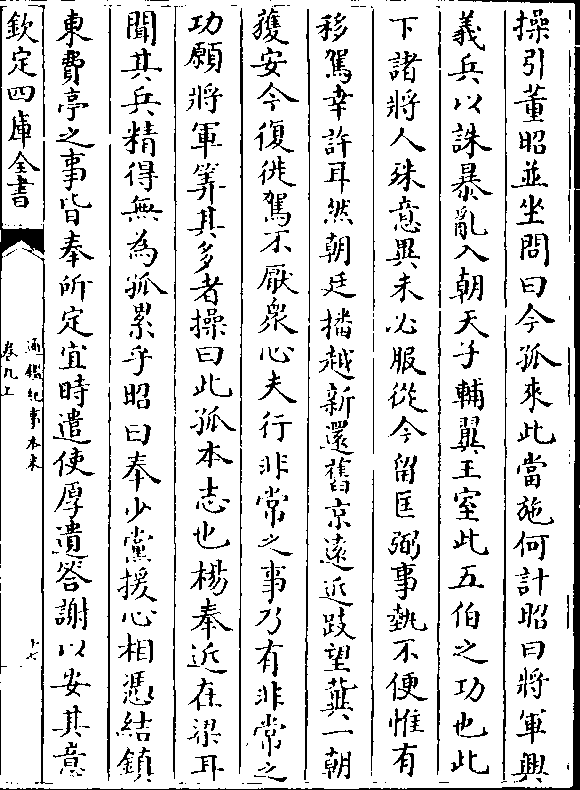 操引董昭並坐問曰今孤來此當施何計昭曰將軍興
義兵以誅暴亂入朝天子輔翼王室此五伯之功也此
下諸將人殊意異未必服從今留匡弼事埶不便惟有
移駕幸許耳然朝廷播越新還舊京遠近跂望兾一朝
獲安今復徙駕不厭衆心夫行非常之事乃有非常之
功願將軍筭其多者操曰此孤本志也楊奉近在梁耳
聞其兵精得無為孤累乎昭曰奉少黨援心相慿結鎮
東費亭之事皆奉所定宜時遣使厚遺答謝以安其意
欽定四庫全書
通鑑紀事本末
卷九上
十七